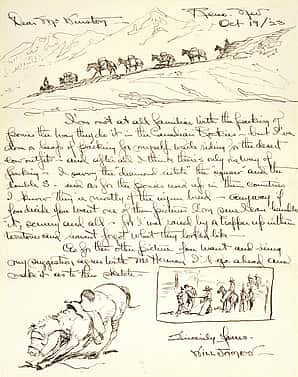 Dear Mr Winston
Reno. Nev
Oct 19/23
I'm not at all familiar with the packing of
ponies the way they do it in the Canadian Rockies - but I've
done a heap of packing for myself while riding for the desert
cow outfit - and after all I think there's only way of
packing - I savvy the diamond the square and the
double S - and as for the ponies used up in them countries
I know they're mostly of the breed - anyway if
you decide you want one of them pictures I'm sure I can handle
it, scenery and all - for I was raised by a trapper up within
territories and wont forget what they looked like -
As for the other picture you want and using
my suggestion agrees with Mr I'll go ahead and
make it as to the sketch -
Sincerely Yours -
WILL JAMES